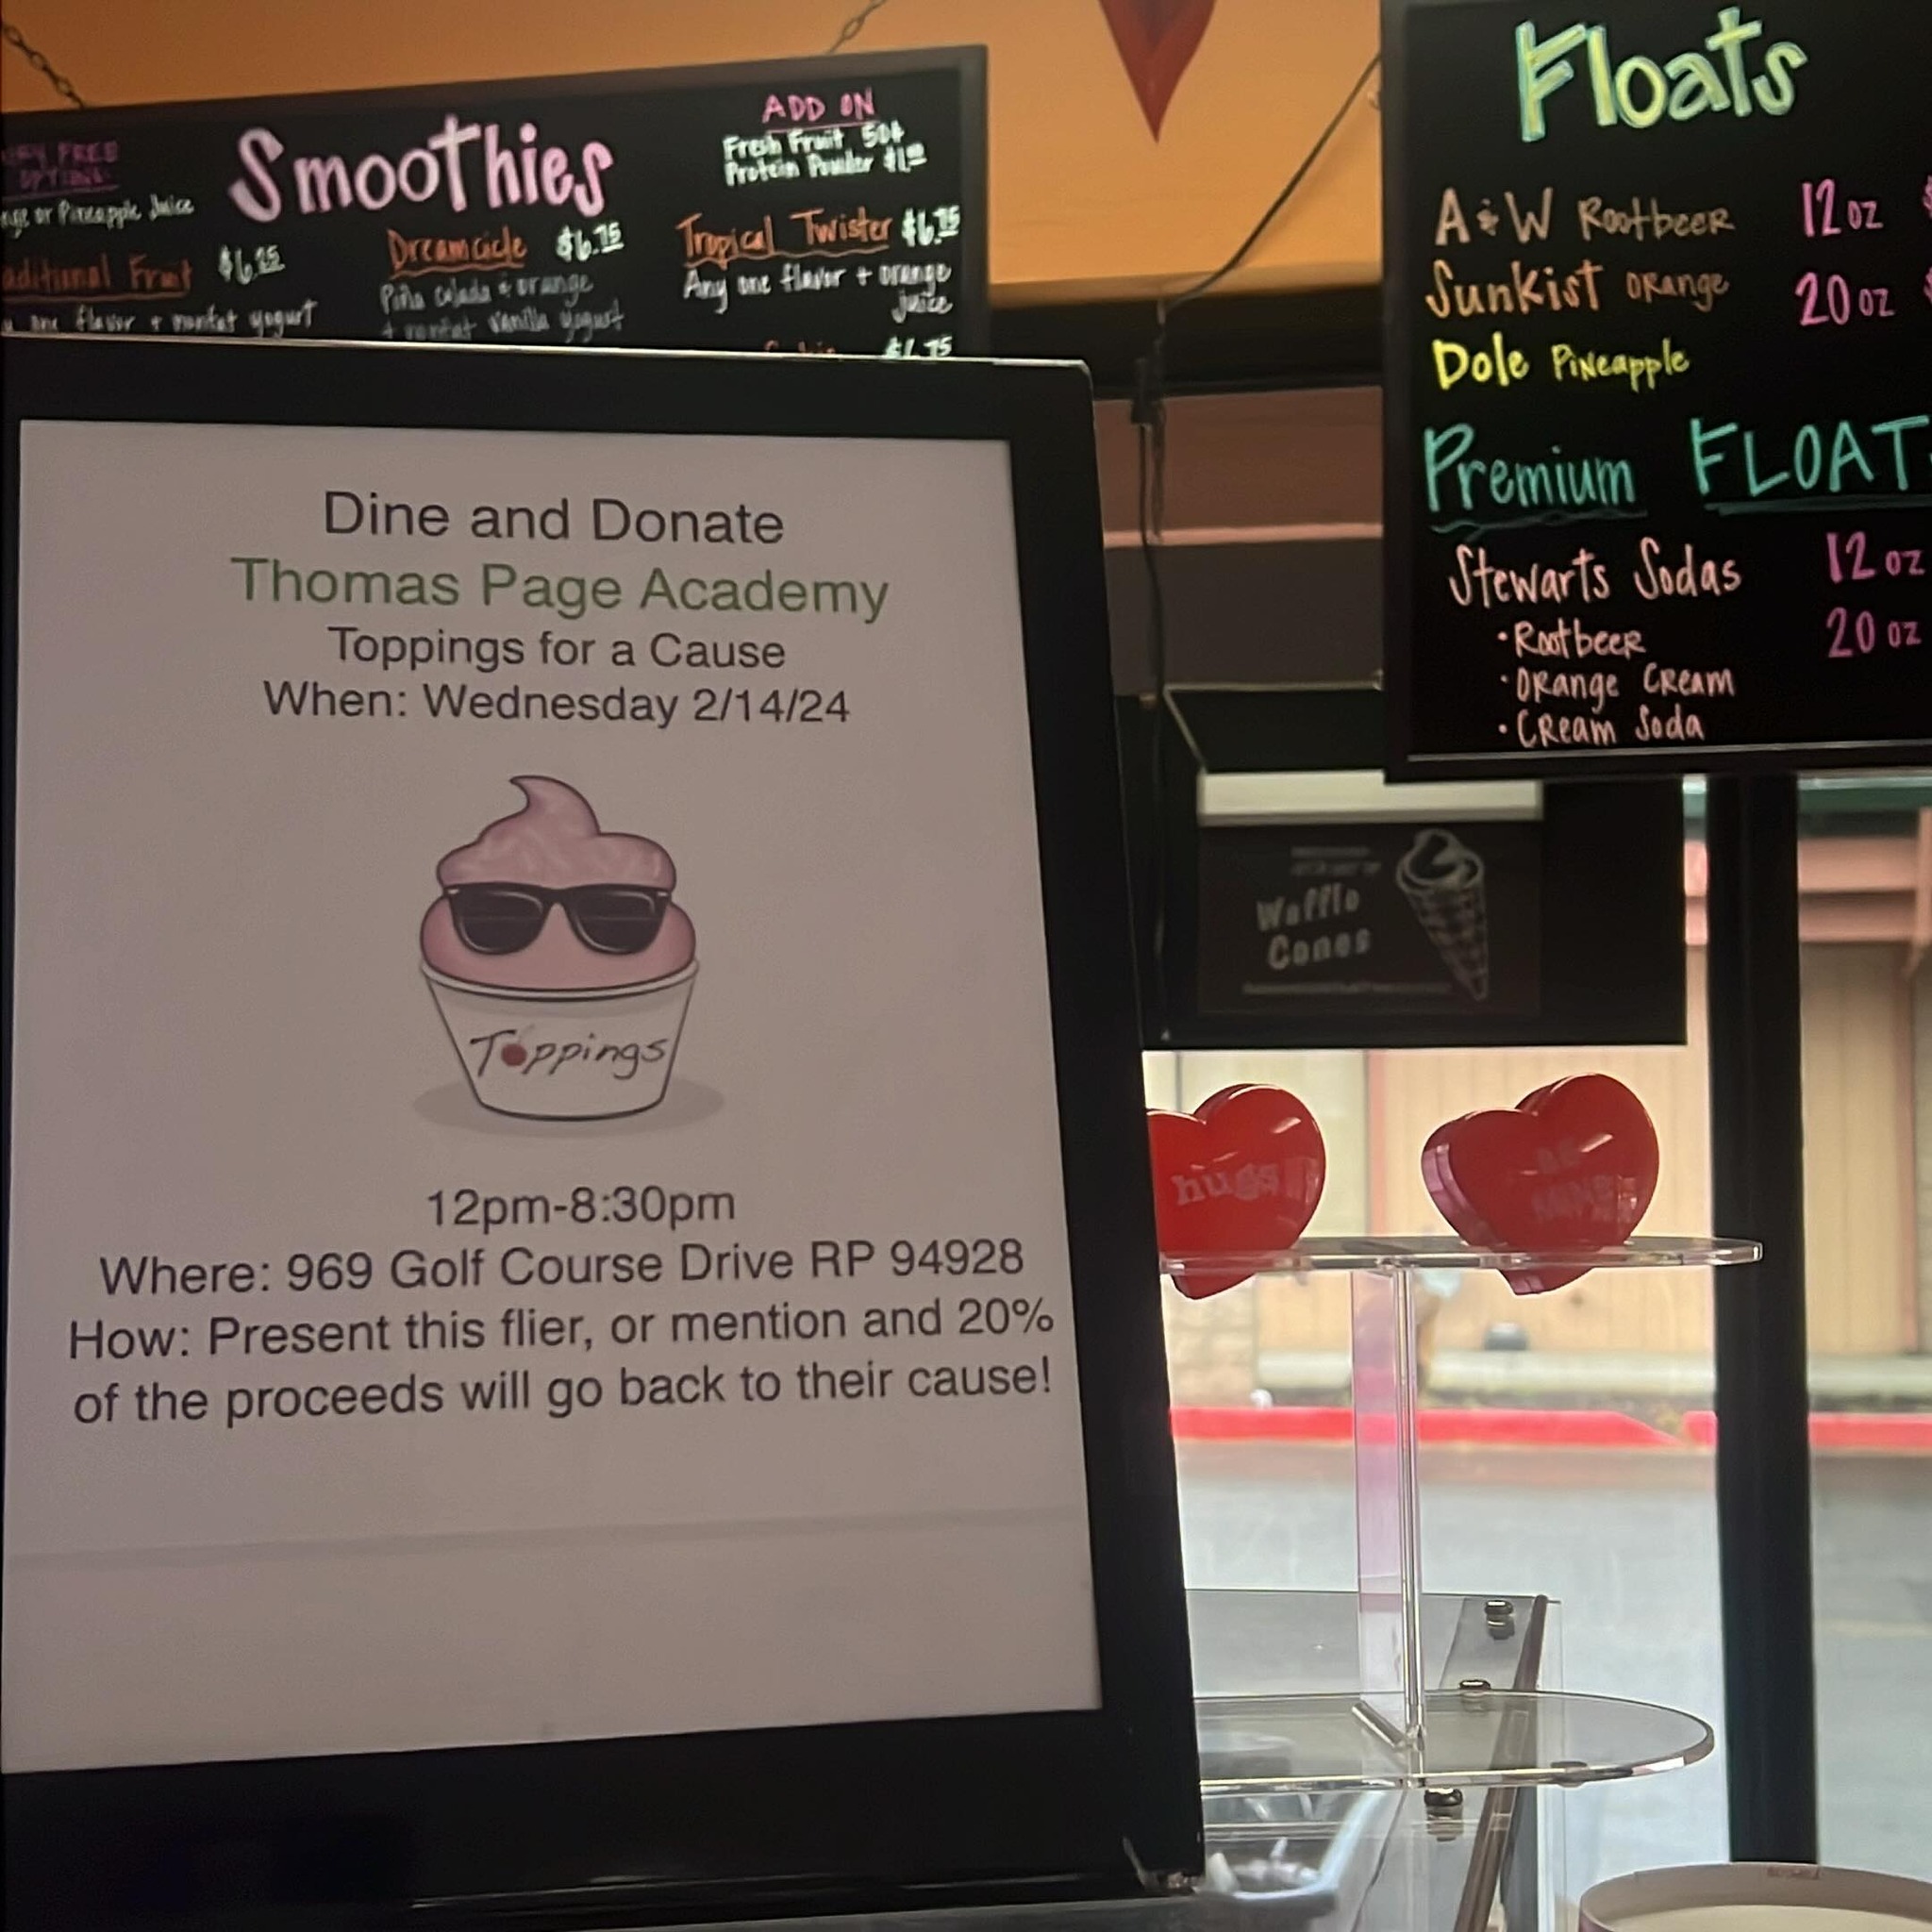 Smoothies
ADD ON
Fresh Fruit 50¢
Protein Powder $1.00
or Pineapple Juice
Fruit $6.25
one flavor + nonfat yogurt
Dreamcicle $6.75
Piña Colada & orange
+ nonfat vanilla yogurt
Tropical Twister $6.75
Any one flavor + orange
juice
Floats
A&W Rootbeer 12oz
Sunkist Orange 20oz
Dole Pineapple
Premium FLOAT
Stewarts Sodas 12oz
• Rootbeer 20oz
• Orange Cream
• Cream Soda
Dine and Donate
Thomas Page Academy
Toppings for a Cause
When: Wednesday 2/14/24
Toppings
12pm-8:30pm
Where: 969 Golf Course Drive RP 94928
How: Present this flier, or mention and 20%
of the proceeds will go back to their cause!
Waffle
Cones
hugs